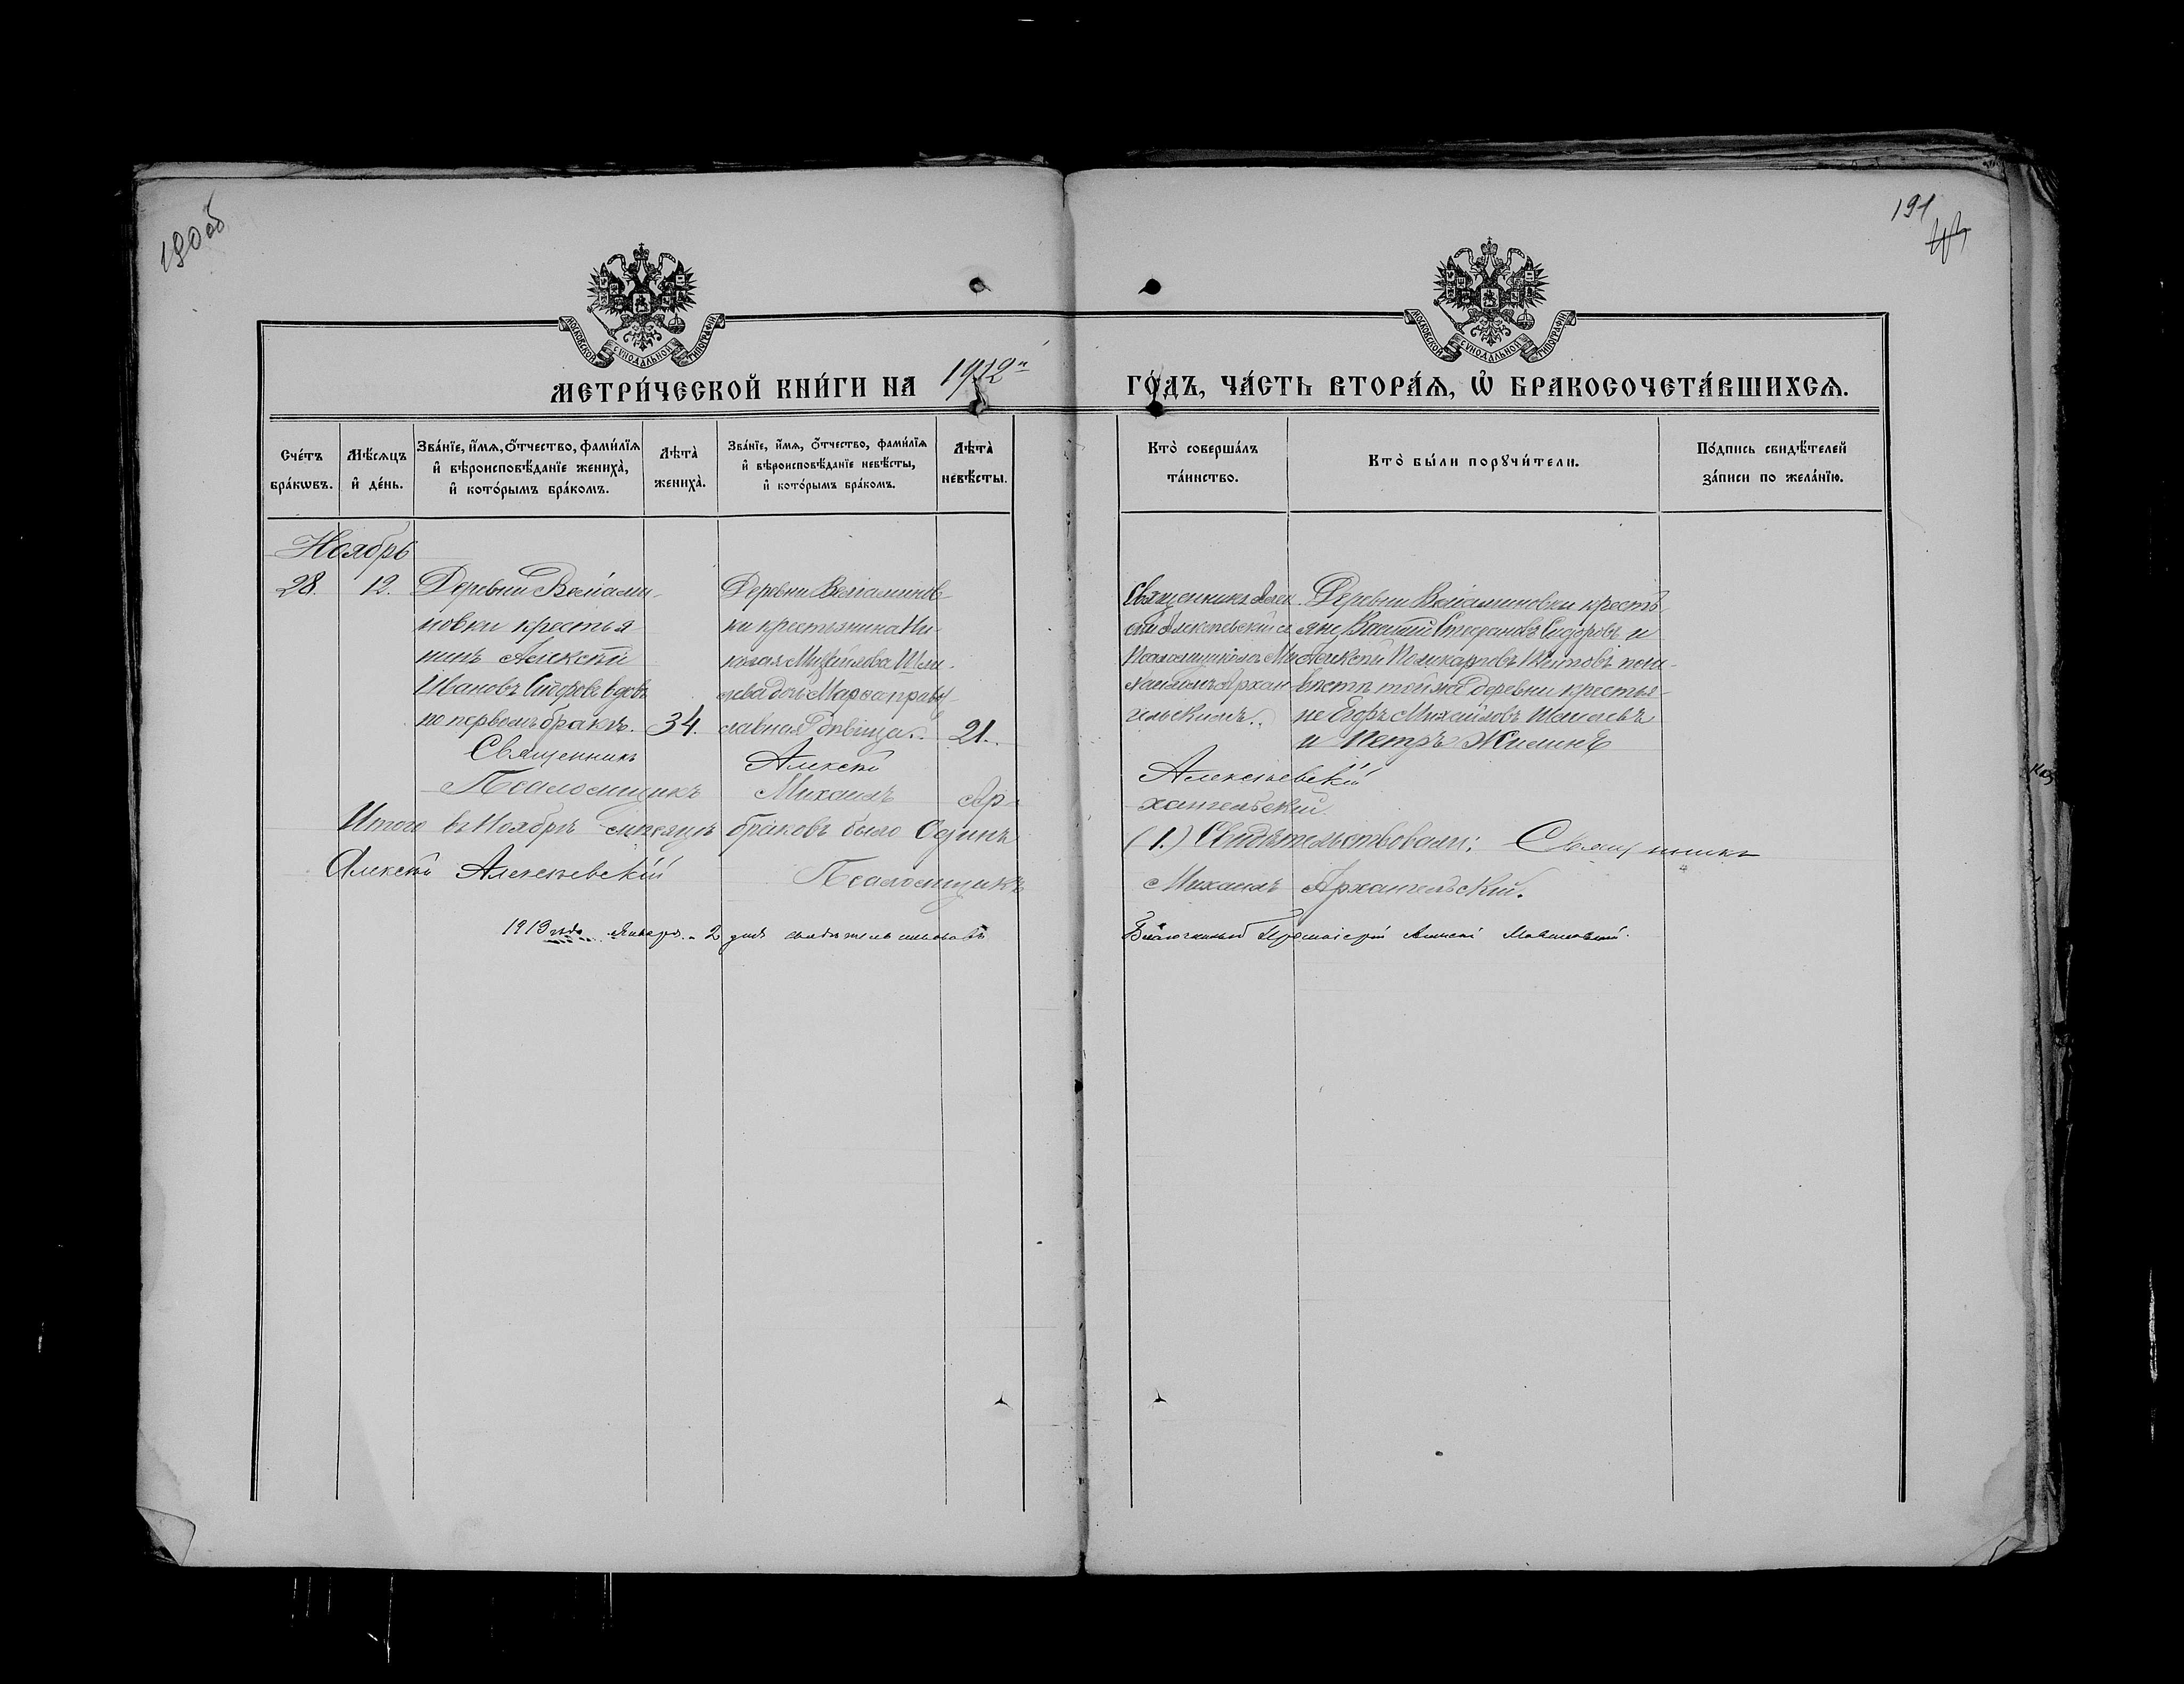 190 об
191
МОСКОВСКОЙ СѴНОДАЛЬНОЙ ТИПОГРАФІИ
МОСКОВСКОЙ СѴНОДАЛЬНОЙ ТИПОГРАФІИ
МЕТРИ́ЧЕСКОЙ КНИ́ГИ НА 1912 ГО́ДЪ, ЧА́СТЬ ВТОРА́Ѧ, Ѡ҆ БРАКОСОЧЕТА́ВШИХСѦ.
Сче́тъ бра́кѡвъ.
Мѣ́сѧцъ и҆ де́нь.
Зва́нїе, и҆́мѧ, о҆́тчество, фами́лїѧ и҆ вѣроисповѣ́данїе жениха̀, и҆ кото́рымъ бра́комъ.
Лѣта̀ жениха̀.
Зва́нїе, и҆́мѧ, о҆́тчество, фами́лїѧ и҆ вѣроисповѣ́данїе невѣ́сты, и҆ кото́рымъ бра́комъ.
Лѣта̀ невѣ́сты.
Кто̀ соверша́лъ та́инство.
Кто̀ бы́ли порꙋчи́тели.
По́дпись свидѣ́телей за́писи по жела́нїю.
Ноябрь
28.
12.
Деревни Веліами-
новки крестья-
нинъ Алексѣй
Ивановъ Сидоровъ вдовъ
по первомъ бракѣ.
34.
Деревни Веліаминов-
ки крестьянина Ни-
колая Михайлова
дочь Марѳа право-
славная дѣвица.
21.
Священникъ Алек-
сѣй Алексѣевскій съ
Псаломщикомъ Ми-
хаиломъ Архан-
гельскимъ.
Деревни Веліаминовки кресть-
яне Василій Стефановъ Сидоровъ и
Алексѣй Поликарповъ Титовъ по
невѣстѣ той же деревни крестья-
не Егоръ Михайловъ
и Петръ Жилинъ
Священникъ Алексѣй Алексѣевскій
Псаломщикъ Михаилъ Архангельскій
Итого въ Ноябрѣ мѣсяцѣ браковъ было Одинъ (1.) Свидѣтельствовали: Священникъ
Алексѣй Алексѣевскій Псаломщикъ Михаилъ Архангельскій.
1913 года Января 2 дня свидѣтельствовалъ Благочинный Протоіерей Алексій